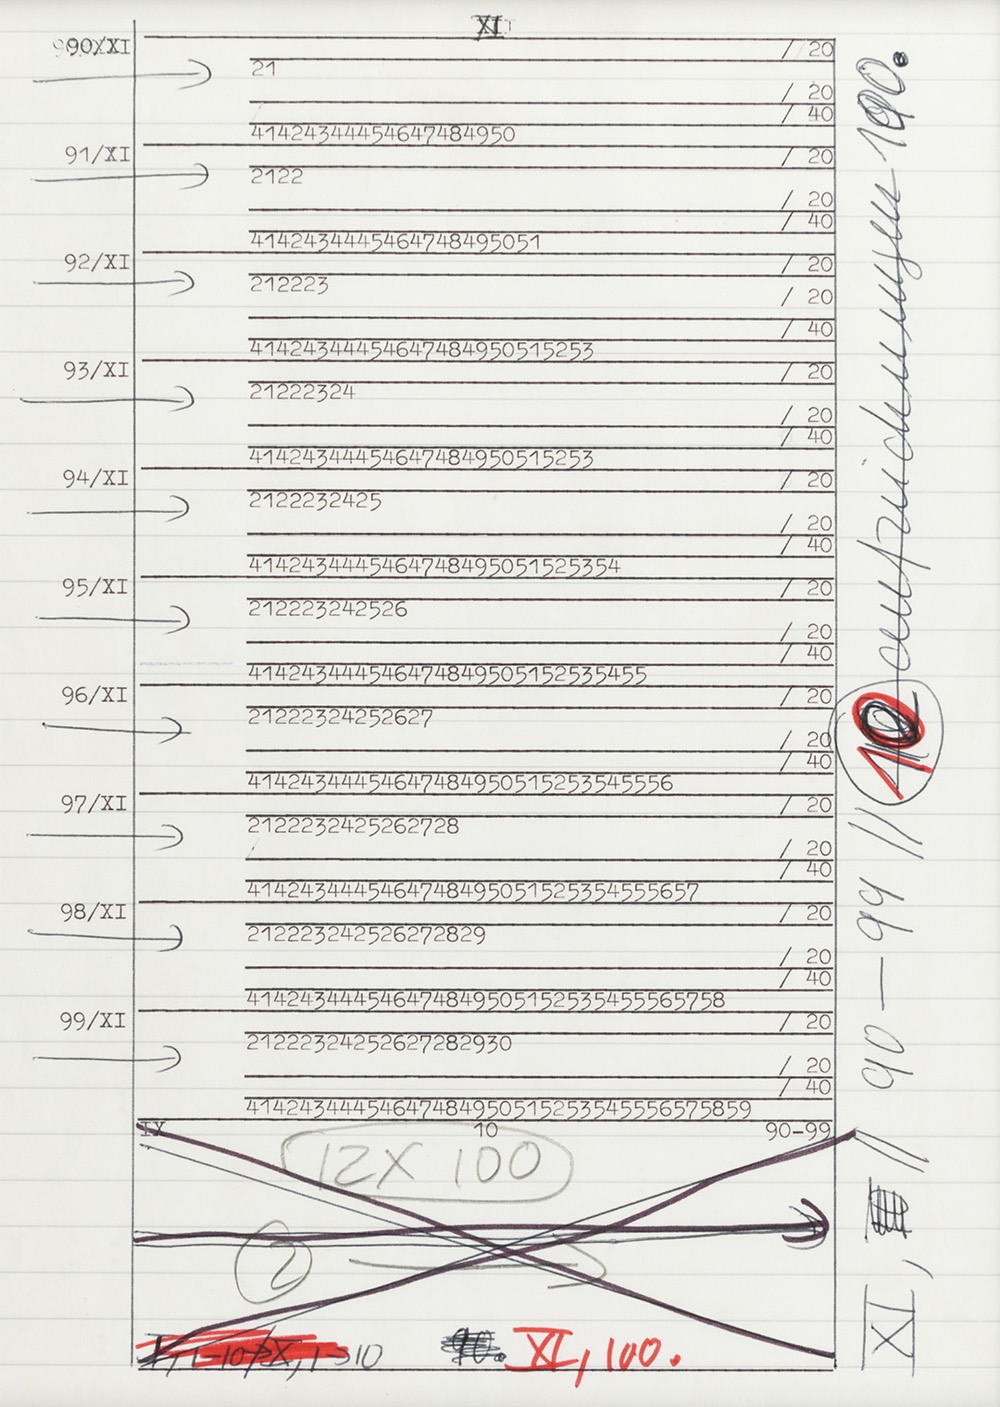 XI
/ 20
21
/ 20
/ 40
41424344454647484950
91/XI / 20
2122
/ 20
/ 40
4142434445464748495051
92/XI / 20
212223
/ 20
/ 40
41424344454647484950515253
93/XI / 20
21222324
/ 20
/ 40
41424344454647484950515253
94/XI / 20
2122232425
/ 20
/ 40
4142434445464748495051525354
95/XI / 20
212223242526
/ 20
/ 40
414243444546474849505152535455
96/XI / 20
21222324252627
/ 20
/ 40
41424344454647484950515253545556
97/XI / 20
2122232425262728
/ 20
/ 40
4142434445464748495051525354555657
98/XI / 20
212223242526272829
/ 20
/ 40
414243444546474849505152535455565758
99/XI / 20
21222324252627282930
/ 20
/ 40
41424344454647484950515253545556575859
IX 10 90-99
12X 100
2
XI, 100.
XI, // 90—99 // 10 100.